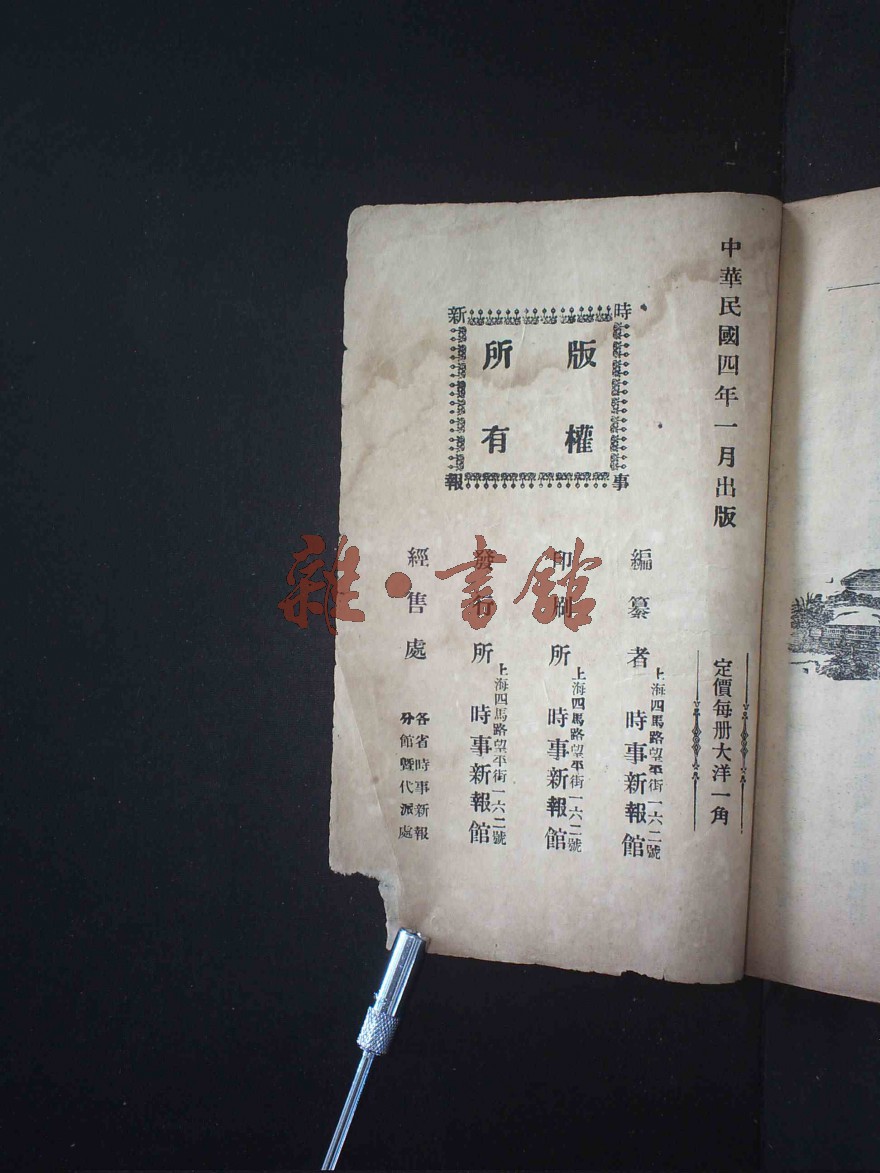 中華民國四年一月出版
定價每册大洋一角
時事新報
版權
所有
編纂者
上海四馬路望平街一六二號
時事新報館
印刷所
上海四馬路望平街一六二號
時事新報館
發行所
上海四馬路望平街一六二號
時事新報館
經售處
各省時事新報
分館曁代派處
雜·書館